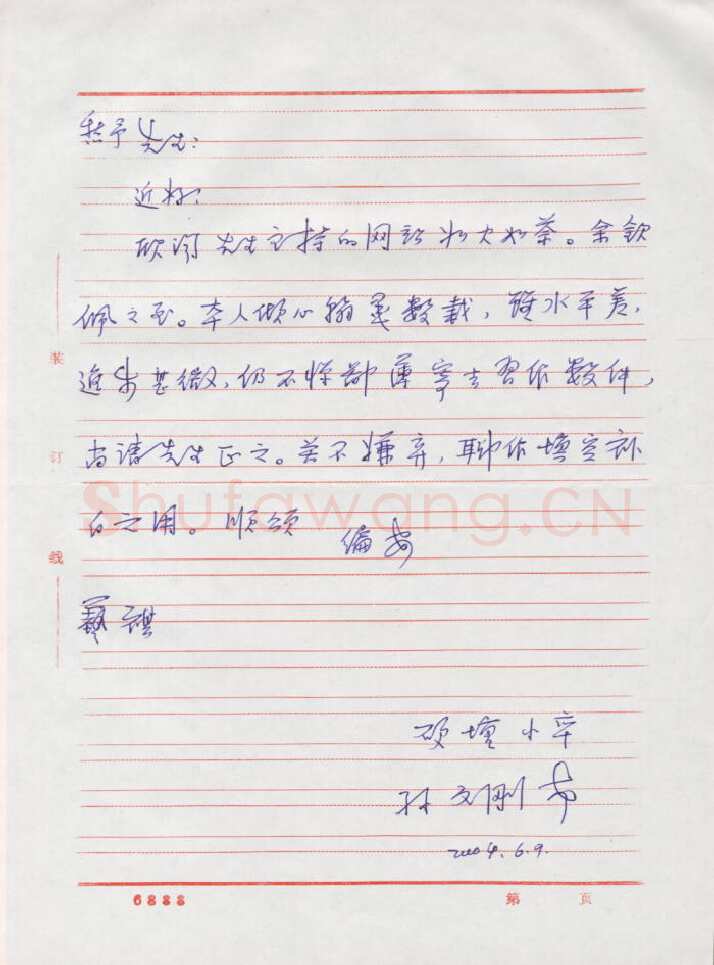 愁予先生:
近好!
欣闻先生主持的网站如火如荼。余钦
佩之至。本人倾心翰墨数载,虽水平差,
进步甚微,仍不惴鄙薄寄去习作数件,
尚请先生正之。若不嫌弃,聊作填空补
白之用。顺颂 编安
艺祺
砚坛小卒
孙文刚
2004.6.9.
装
订
线
Shufawang.CN
6888
第 页